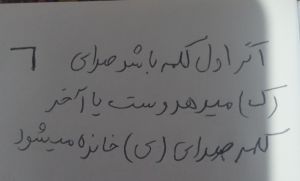 اگر اول کلمه باشد صدای ٦
(ک) میدهد وسط یا آخر
کلمه صدای (ی) خوانده میشود